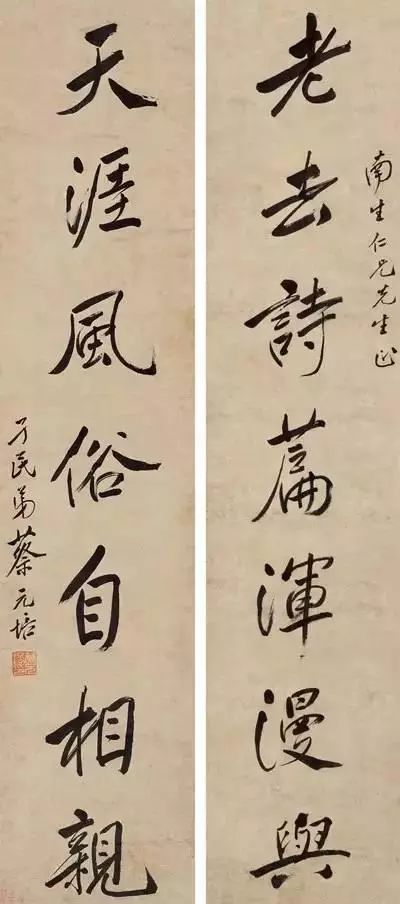 南生仁兄先生正
老去詩篇渾漫與
天涯風俗自相親
孑民弟蔡元培